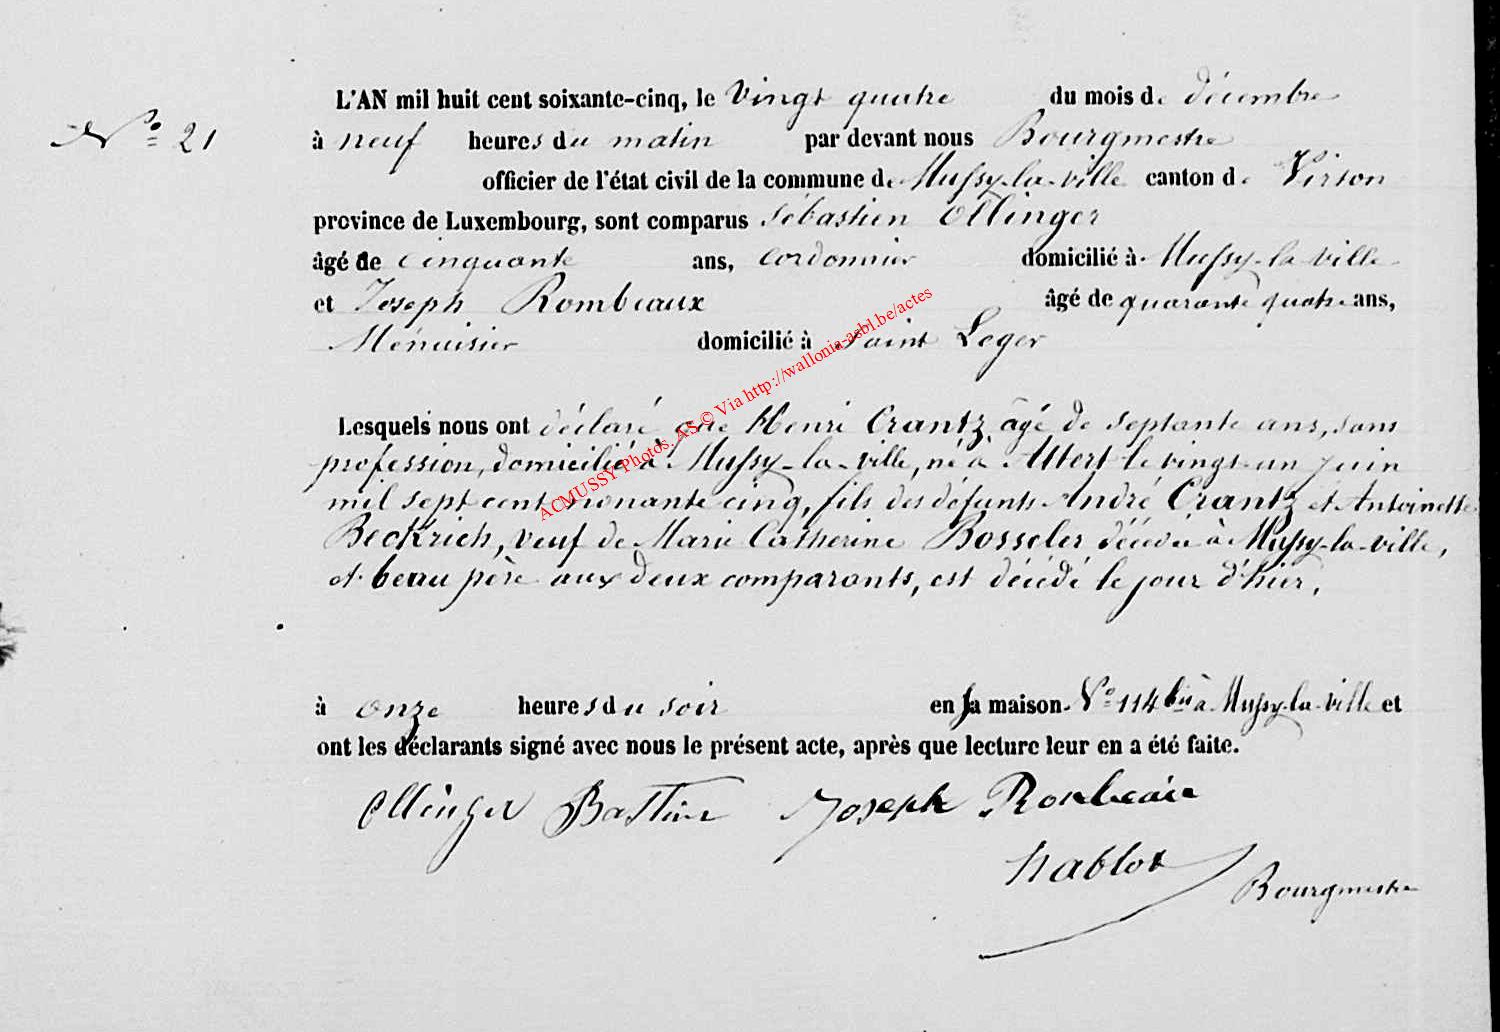 L'AN mil huit cent soixante-cinq, le vingt quatre du mois de décembre
N° 21 à neuf heures du matin par devant nous Bourgmestre
officier de l'état civil de la commune de Mussy-la-ville canton de Virton
province de Luxembourg, sont comparus Sébastien Ollinger
âgé de cinquante ans, cordonnier domicilié à Mussy-la-ville
et Joseph Rombeaux âgé de quarante quatre ans,
Menuisier domicilié à Saint Leger
Lesquels nous ont déclaré que Henri Crantz âgé de septante ans, sans
profession, domicilié à Mussy-la-ville, né à Attert le vingt-un juin
mil sept cent nonante cinq, fils des défunts André Crantz et Antoinette
Beckrich, veuf de Marie Catherine Bosseler décédée à Mussy-la-ville,
et beau père aux deux comparants, est décédé le jour d'hier,
à onze heures du soir en sa maison N° 114 bis à Mussy-la-ville et
ont les déclarants signé avec nous le présent acte, après que lecture leur en a été faite.
Ollinger Bastien Joseph Rombeaux
Nablot
Bourgmestre
ACMUSSY-Photos. AS © Via http://wallonia-asbl.be/actes